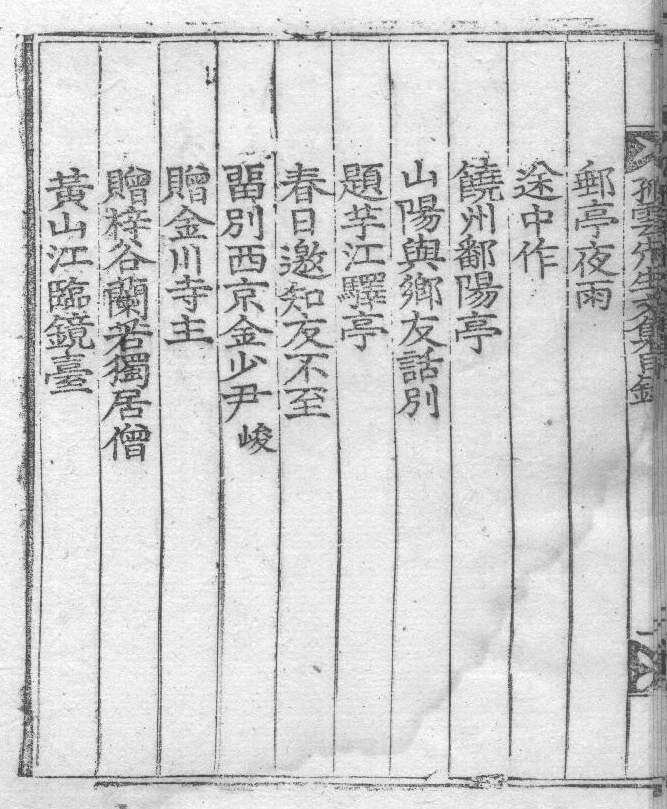 孤雲先生文集目錄
一
郵亭夜雨
途中作
饒州鄱陽亭
山陽與鄉友話別
題芋江驛亭
春日邀知友不至
留別西京金少尹峻
贈金川寺主
贈梓谷蘭若獨居僧
黃山江臨鏡臺